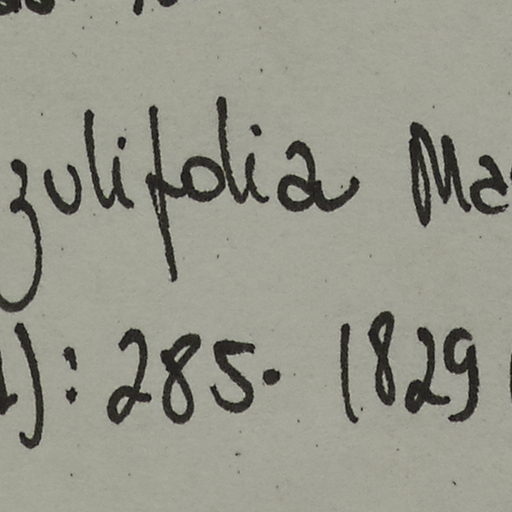 zulifolia Ma
): 285. 1829